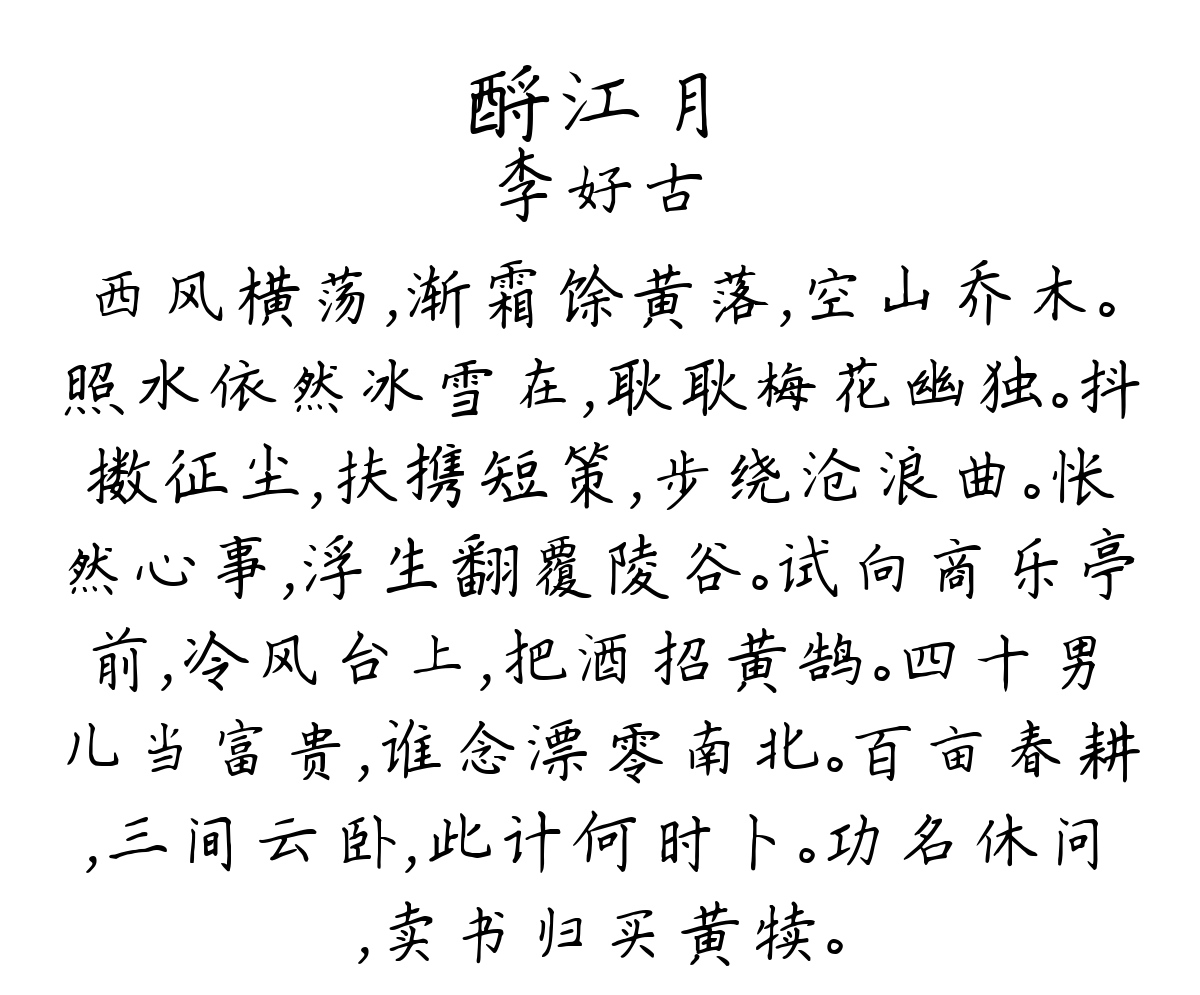 酹江月
李好古
西风横荡,渐霜馀黄落,空山乔木。
照水依然冰雪在,耿耿梅花幽独。抖
擞征尘,扶携短策,步绕沧浪曲。怅
然心事,浮生翻覆陵谷。试向商乐亭
前,冷风台上,把酒招黄鹄。四十男
儿当富贵,谁念漂零南北。百亩春耕
,三间云卧,此计何时卜。功名休问
,卖书归买黄犊。